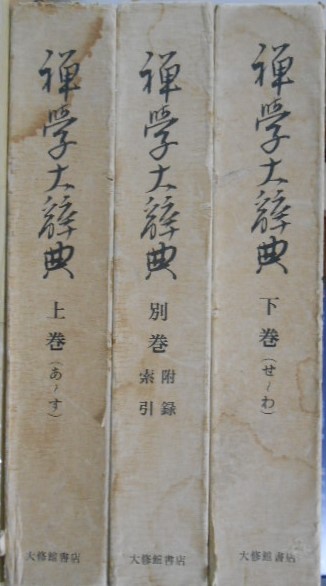 禅學大辞典
上巻(あ～す)
大修館書店
禅學大辞典
別巻
附録
索引
大修館書店
禅學大辞典
下巻(せ～わ)
大修館書店